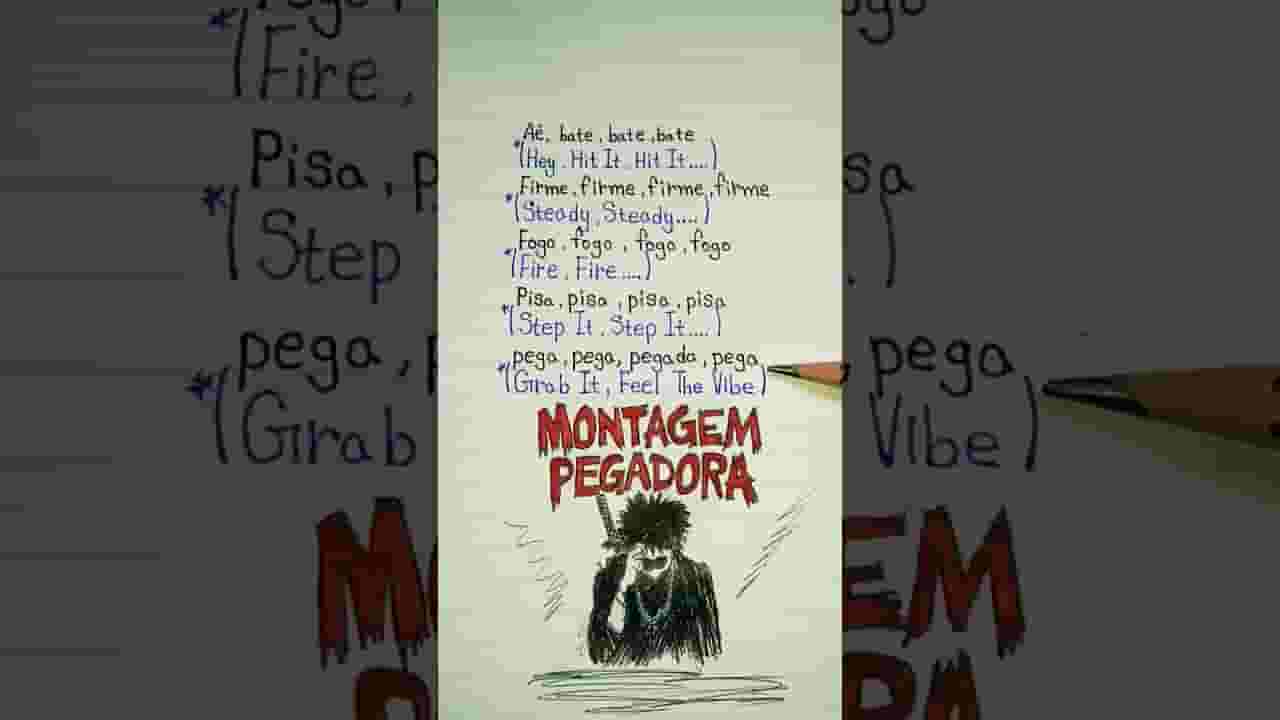 Aê, bate, bate, bate
*(Hey, Hit It, Hit It....)
Firme, firme, firme, firme
*(Steady, Steady....)
Fogo, fogo, fogo, fogo
*(Fire, Fire....)
Pisa, pisa, pisa, pisa
*(Step It, Step It....)
pega, pega, pegada, pega
*(Grab It, Feel The Vibe)
MONTAGEM
PEGADORA